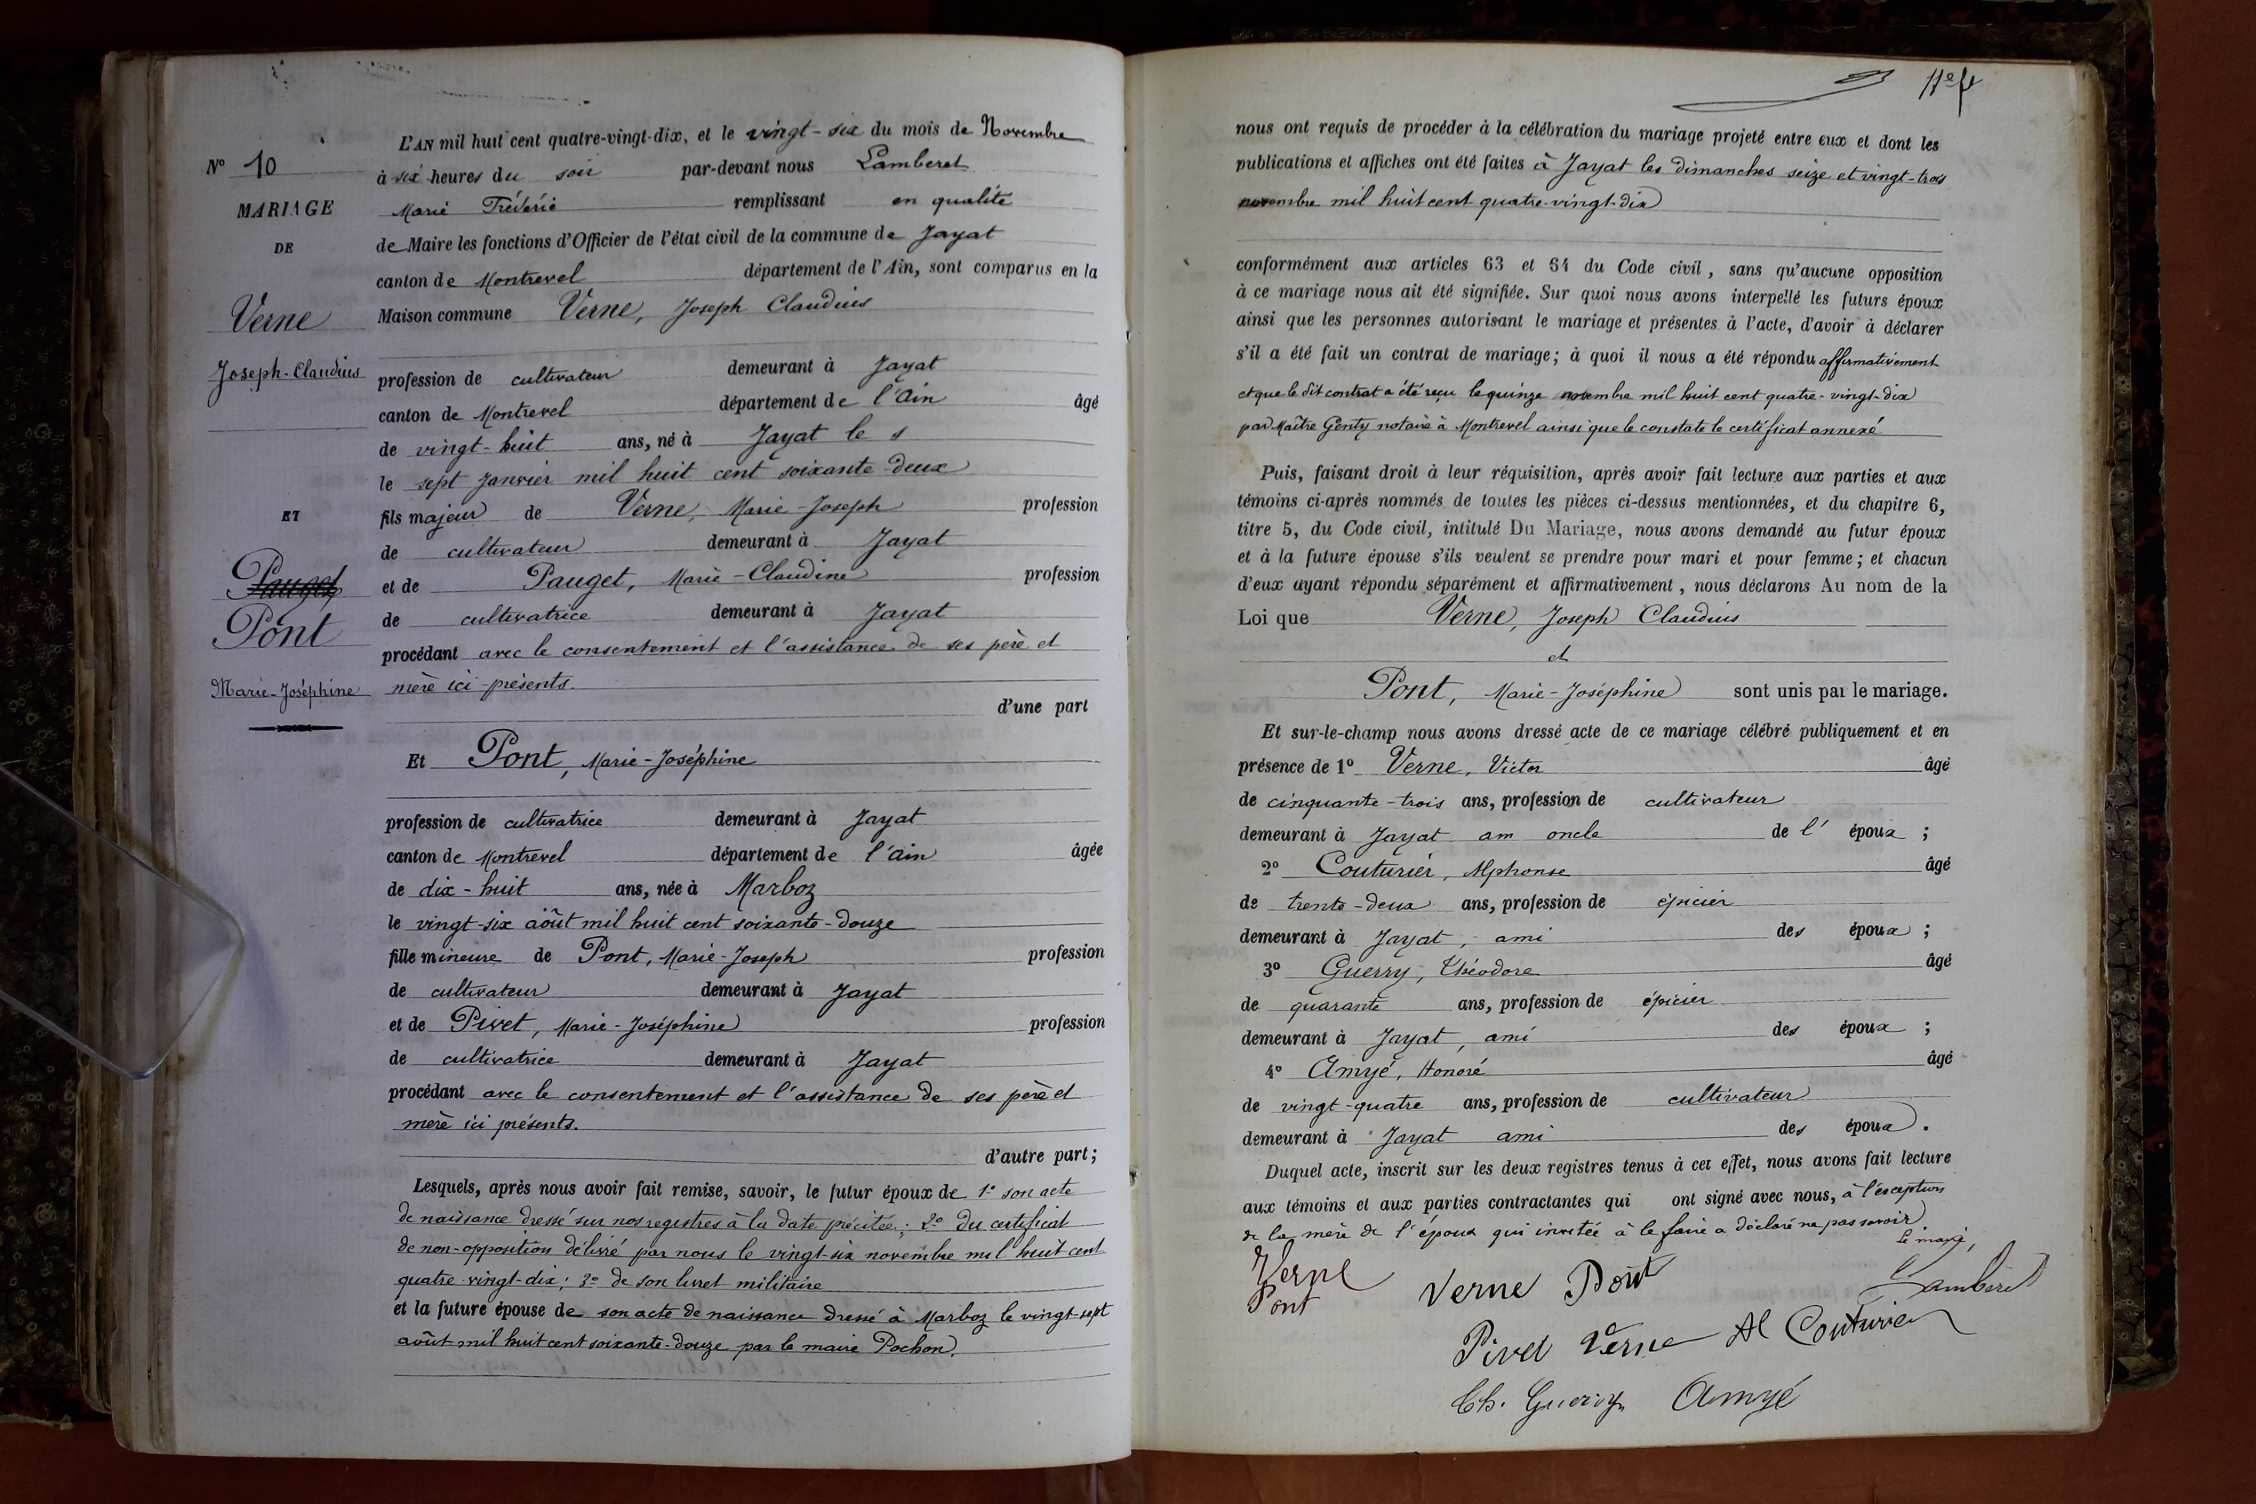 N° 10
MARIAGE
DE
Verne
Joseph-Claudius
ET
Pauget
Pont
Marie-Joséphine
L'AN mil huit cent quatre-vingt-dix, et le vingt-six du mois de Novembre
à six heures du soir par-devant nous Lamberet
Marie Fréderic remplissant en qualité
de Maire les fonctions d'Officier de l'état civil de la commune de Jayat
canton de Montrevel département de l'Ain, sont comparus en la
Maison commune Verne, Joseph Claudius
profession de cultivateur demeurant à Jayat
canton de Montrevel département de l'Ain âgé
de vingt-huit ans, né à Jayat le
le sept Janvier mil huit cent soixante-deux
fils majeur de Verne, Marie-Joseph profession
de cultivateur demeurant à Jayat
et de Pauget, Marie-Claudine profession
de cultivatrice demeurant à Jayat
procédant avec le consentement et l'assistance de ses père et
mère ici présents.
d'une part
Et Pont, Marie-Joséphine
profession de cultivatrice demeurant à Jayat
canton de Montrevel département de l'Ain âgée
de dix-huit ans, née à Marboz
le vingt-six août mil huit cent soixante-douze
fille mineure de Pont, Marie-Joseph profession
de cultivateur demeurant à Jayat
et de Pivet, Marie-Joséphine profession
de cultivatrice demeurant à Jayat
procédant avec le consentement et l'assistance de ses père et
mère ici présents.
d'autre part;
Lesquels, après nous avoir fait remise, savoir, le futur époux de 1° son acte
de naissance dressé sur nos registres à la date précitée; 2° du certificat
de non-opposition délivré par nous le vingt-six novembre mil huit cent
quatre-vingt-dix; 3° de son livret militaire
et la future épouse de son acte de naissance dressé à Marboz le vingt-sept
août mil huit cent soixante-douze par le maire Pochon.
nous ont requis de procéder à la célébration du mariage projeté entre eux et dont les
publications et affiches ont été faites à Jayat les dimanches seize et vingt-trois
novembre mil huit cent quatre-vingt-dix
conformément aux articles 63 et 64 du Code civil, sans qu'aucune opposition
à ce mariage nous ait été signifiée. Sur quoi nous avons interpellé les futurs époux
ainsi que les personnes autorisant le mariage et présentes à l'acte, d'avoir à déclarer
s'il a été fait un contrat de mariage; à quoi il nous a été répondu affirmativement
et que le dit contrat a été reçu le quinze novembre mil huit cent quatre-vingt-dix
par Maître Genty notaire à Montrevel ainsi que le constate le certificat annexé
Puis, faisant droit à leur réquisition, après avoir fait lecture aux parties et aux
témoins ci-après nommés de toutes les pièces ci-dessus mentionnées, et du chapitre 6,
titre 5, du Code civil, intitulé Du Mariage, nous avons demandé au futur époux
et à la future épouse s'ils veulent se prendre pour mari et pour femme; et chacun
d'eux ayant répondu séparément et affirmativement, nous déclarons Au nom de la
Loi que Verne, Joseph Claudius
et
Pont, Marie-Joséphine sont unis par le mariage.
Et sur-le-champ nous avons dressé acte de ce mariage célébré publiquement et en
présence de 1° Verne, Victor âgé
de cinquante-trois ans, profession de cultivateur
demeurant à Jayat am oncle de l' époux ;
2° Couturier, Alphonse âgé
de trente-deux ans, profession de épicier
demeurant à Jayat, ami des époux ;
3° Guerry, Théodore âgé
de quarante ans, profession de épicier
demeurant à Jayat, ami des époux ;
4° Amyé, Honoré âgé
de vingt-quatre ans, profession de cultivateur
demeurant à Jayat ami des époux .
Duquel acte, inscrit sur les deux registres tenus à cet effet, nous avons fait lecture
aux témoins et aux parties contractantes qui ont signé avec nous, à l'exception
de la mère de l'époux qui invitée à le faire a déclaré ne pas savoir.
le maire,
Verne Verne Pont Lamberet
Pont
Pivet Verne Al Couturier
Th. Guerry Amyé